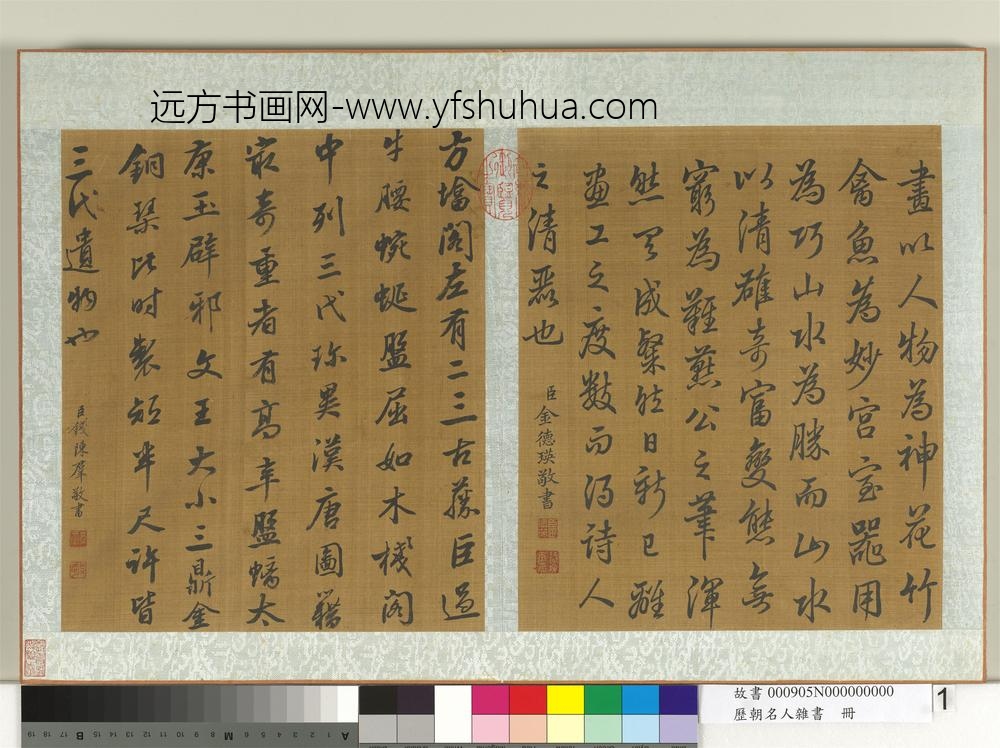 远方书画网-www.yfshuhua.com
畫以人物為神花竹
禽魚為妙宮室器用
為巧山水為勝而山水
以清雄奇富變態無
窮為難燕公之筆渾
然天成粲然日新已離
畫工之度數而得詩人
之清麗也
臣金德瑛敬書
方墖閣左有二三古藤巨過
牛腰蜿蜒盤屈如木棧閣
中列三代珎異漢唐圖籍
最奇重者有高辛盤螭太
康玉辟邪文王大小三鼎金
銅琹此時製短半尺許皆
三代遺物也
臣錢陳羣敬書
故書 000905N000000000
歷朝名人雜書 冊
1